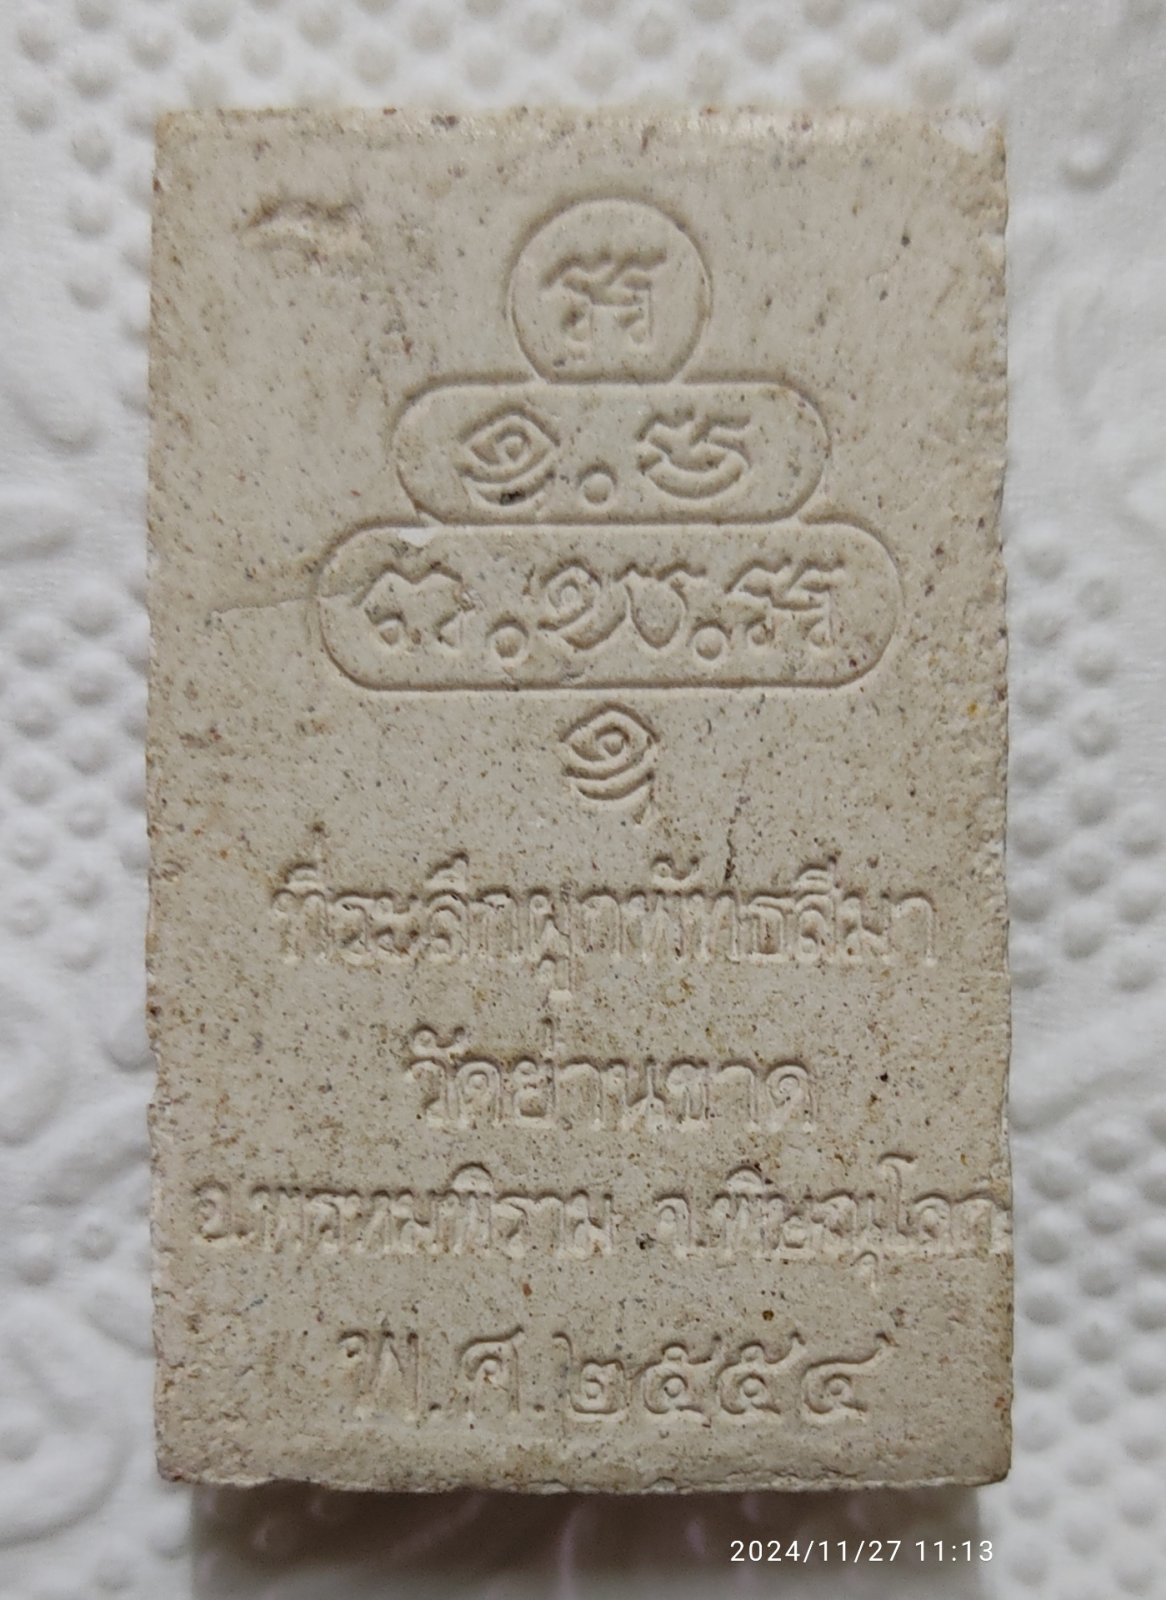 ที่ระลึกผูกพัทธสีมา
วัดย่านขาด
อ.พรหมพิราม จ.พิษณุโลก
พ.ศ.๒๕๕๔
2024/11/27 11:13